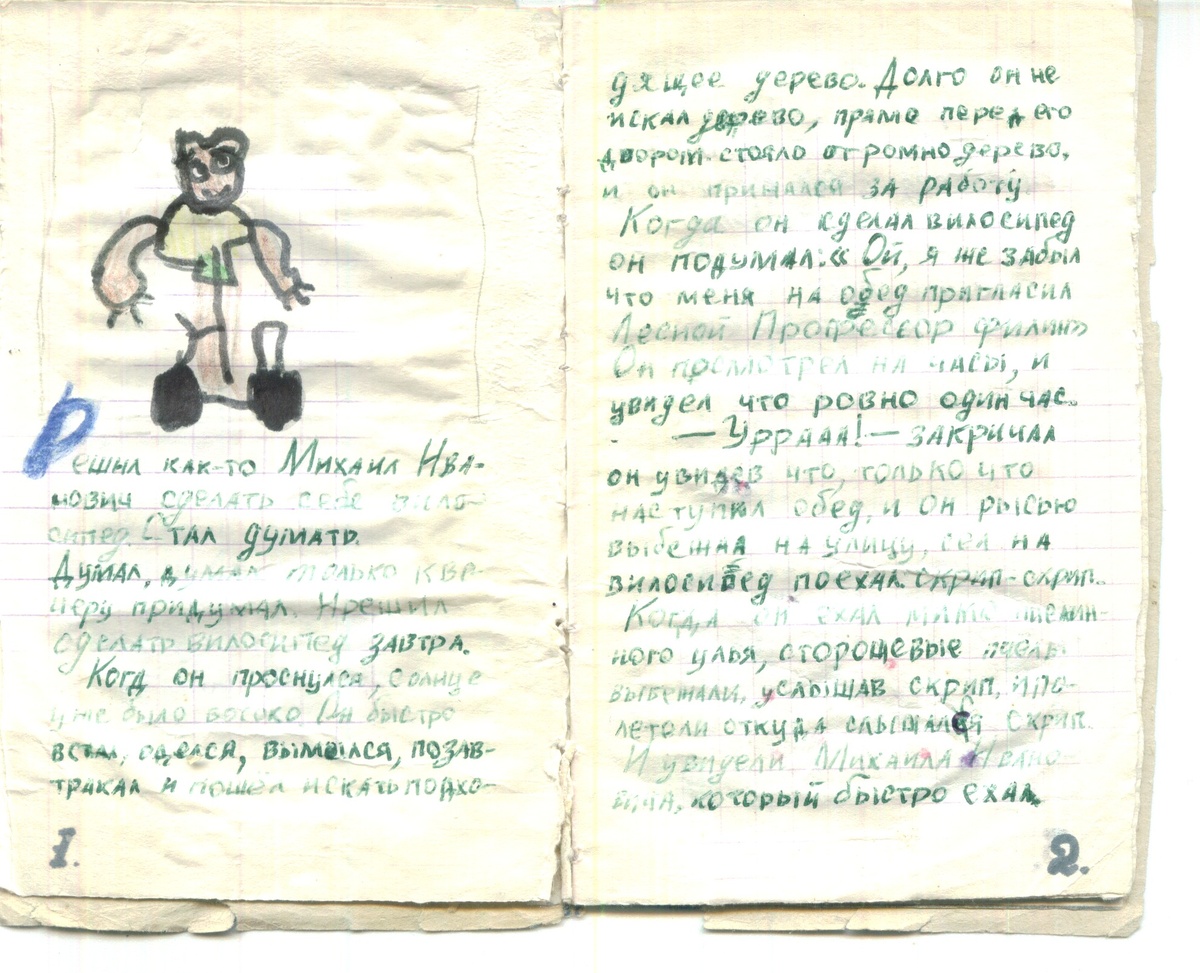 Решил как-то Михаил Ива-
нович сделать себе вило-
сипед. Стал думать.
Думал, думал только к ве-
черу придумал. И решил
сделать вилосипед завтра.
Когд он проснулся, солнце
уже было восоко. Он быстро
встал, оделся, вымылся, позав-
тракал и пошёл искать подхо-
1.
дящее дерево. Долго он не
искал дерево, прямо перед его
двором стояло огромно дерево,
и он принялся за работу.
Когда он сделал вилосипед
он подумал: « Ой, я же забыл
что меня на обед пригласил
Лесной Профессор филин»
Он просмотрел на часы, и
увидел что ровно один час.
— Уррааа! — закричал
он увидев что, только что
наступил обед, и он рысью
выбежал на улицу, сел на
вилосипед поехал. скрип-скрип.
Когда он ехал мимо
ного улья, сторощевые пчелы
выбежали, услышав скрип, и по-
летели откуда слышался скрип.
И увидели Михаила Ивано-
вича, который быстро ехал.
2.